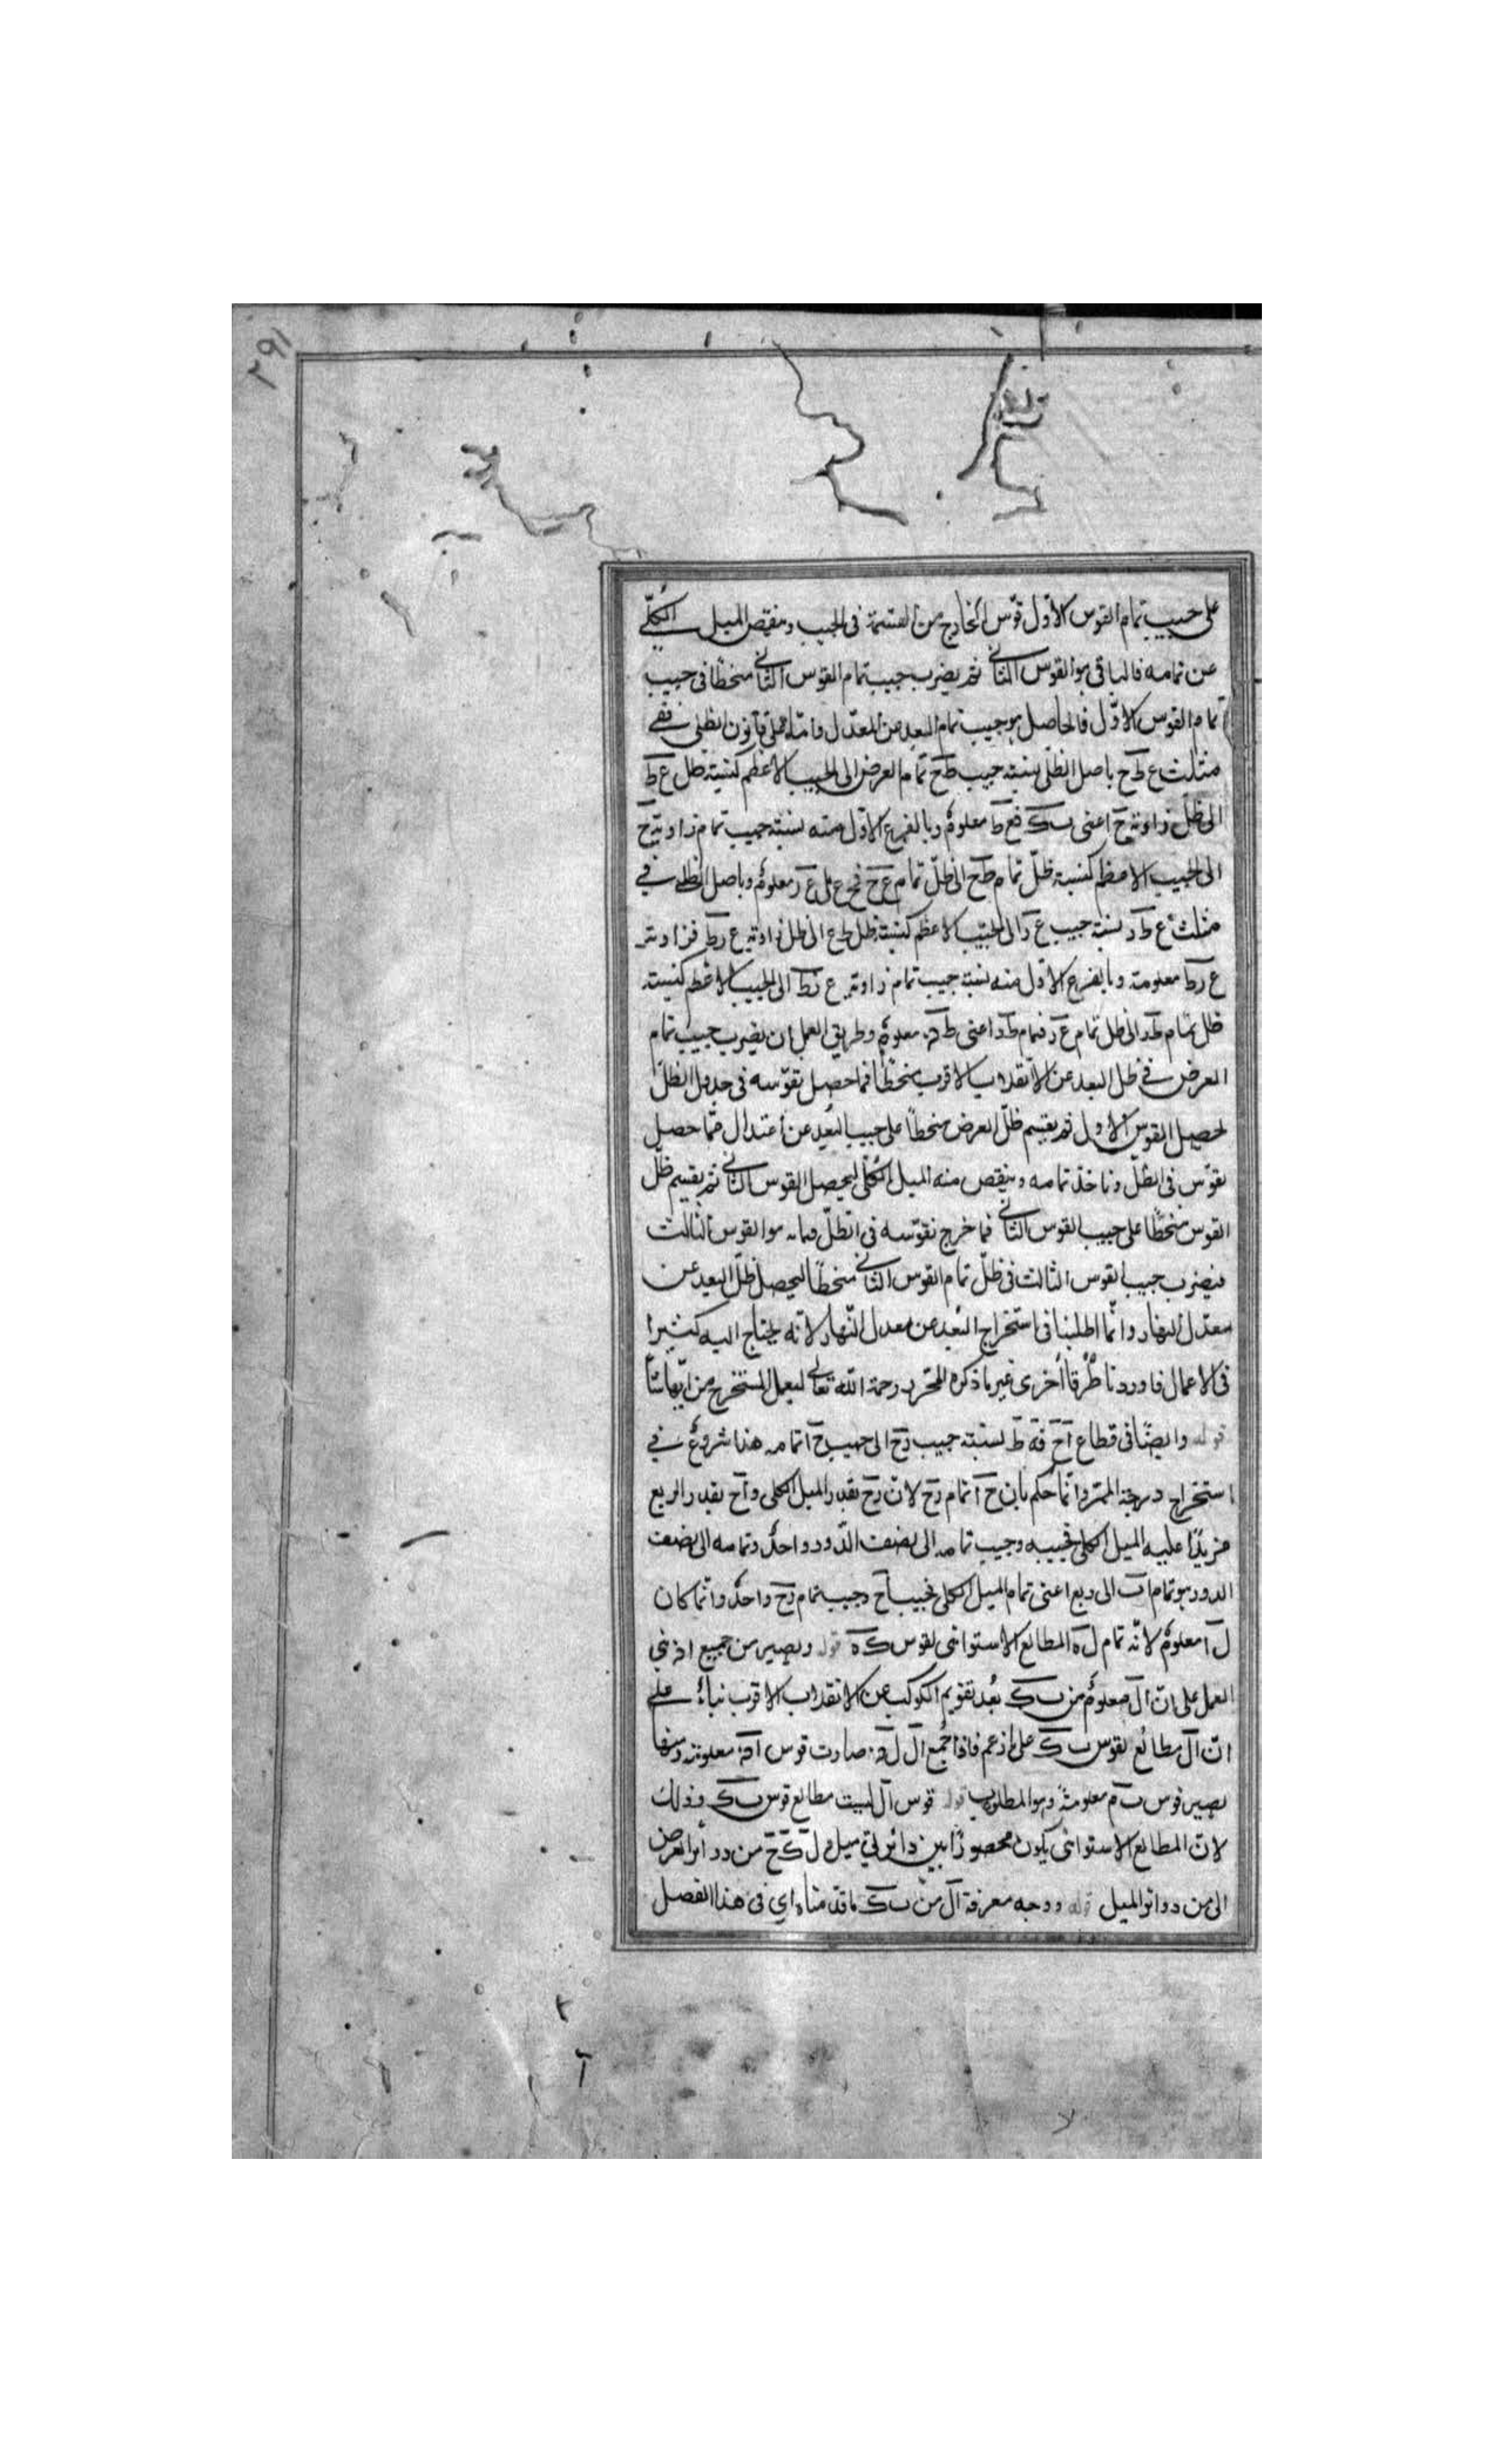 ٢٩١
على جيب تمام القوس الاوّل قوّس الخارج من القسمة فى الجيب وينقص الميل الكلّى
عن تمامه فالباقى هو القوس الثانى ثم يضرب جيب تمام القوس الثانى منحطّا فى جيب
تمام القوس الاوّل فالحاصل هو جيب تمام البعد عن المعدّل وامّا على قانون الظلى ففى
مثلث ع ط ح باصل الظلّى نسبة جيب ط ح تمام العرض الى الجيب الاعظم كنسبة ظل ع ط
الى ظلّ زاوية ح اعنى ب ك فع ط معلومٌ وبالفرع الاوّل منه نسبة جيب تمام زاوية ح
الى الجيب الاعظم كنسبة ظلّ تمام ط ح الى ظلّ تمام ع ح فح ع بل ع ر معلومٌ وباصل الظلى فى
مثلث ع ط ر نسبة جيب ع ر الى الجيب الاعظم كنسبة ظل ط ع الى ظل زاوية ع ر ط فزاوية
ع ر ط معلومة وبالفرع الاوّل منه نسبة جيب تمام زاوية ع ر ط الى الجيب الاعظم كنسبة
ظل تمام ط ر الى ظل تمام ع ر فتمام ط ر اعنى ط ف معلومٌ وطريق العمل ان يضرب جيب تمام
العرض فى ظل البعد عن الانقلاب الاقرب منحطّا فما حصل نقوّسه فى جدول الظلّ
لحصيل القوس الاول ثم يقسم ظلّ العرض منحطاً على جيب البعد عن اعتدال فما حصل
نقوّس فى الظلّ وناخذ تمامه وينقص منه الميل الكلّى ليحصل القوس الثانى ثم يقسم ظلّ
القوس منحطًّا على جيب القوس الثانى فما خرج نقوّسه فى الظلّ هو القوس الثالث
فيضرب جيب القوس الثالث فى ظلّ تمام القوس الثانى منحطّا ليحصل ظلّ البعد عن
معدّل النهار وانّما اطلبنا فى استخراج البُعد عن معدل النّهار لانّه يحتاج اليه كثيرا
فى الاعمال فاوردنا طُرقًا أُخرى غير ما ذكره المحرّر رحمة اللّه تعالى ليعمل المستخرج من ايّها شآء
قوله وايضًا فى قطاع آح فه ط نسبة جيب رح الى جيب ح آ تمامه هذا شروعٌ فى
استخراج درجة الممرّ وانّما حكم بان ح آ تمام رح لانّ رح بقدر الميل الكلى وآح بقدر الربع
مزيدًا عليه الميل الكلى فجيبه وجيب تمامه الى نصف الدّور واحدٌ وتمامه الى نصف
الدور هو تمام اب الى ربع اعنى تمام الميل الكلى فجيب آح وجيب تمام رح واحدٌ وانّما كان
ل آ معلومٌ لانّه تمام ل ه المطالع الاستوائى لقوس ك ه قوله ويصير من جميع اه بنى
العمل على انّ آل معلومٌ من ب ك بُعد تقويم الكوكب عن الانقلاب الاقرب بناءً على
انّ آل مطالع لقوس ب ك على زعم فاذا جُمع آل ل ف صارت قوس آف معلومة ومنها
يصير قوس ب م معلومةً وهو المطلوب قوله قوس آل ليست مطالع قوس ب ك وذلك
لانّ المطالع الاستوائى يكون محصورًا بين دائرتى ميل ول ك ح من دوائر العرض
الى من دوائر الميل قوله ووجه معرفة آل من ب ك ما قدّمناه اى فى هذا الفصل